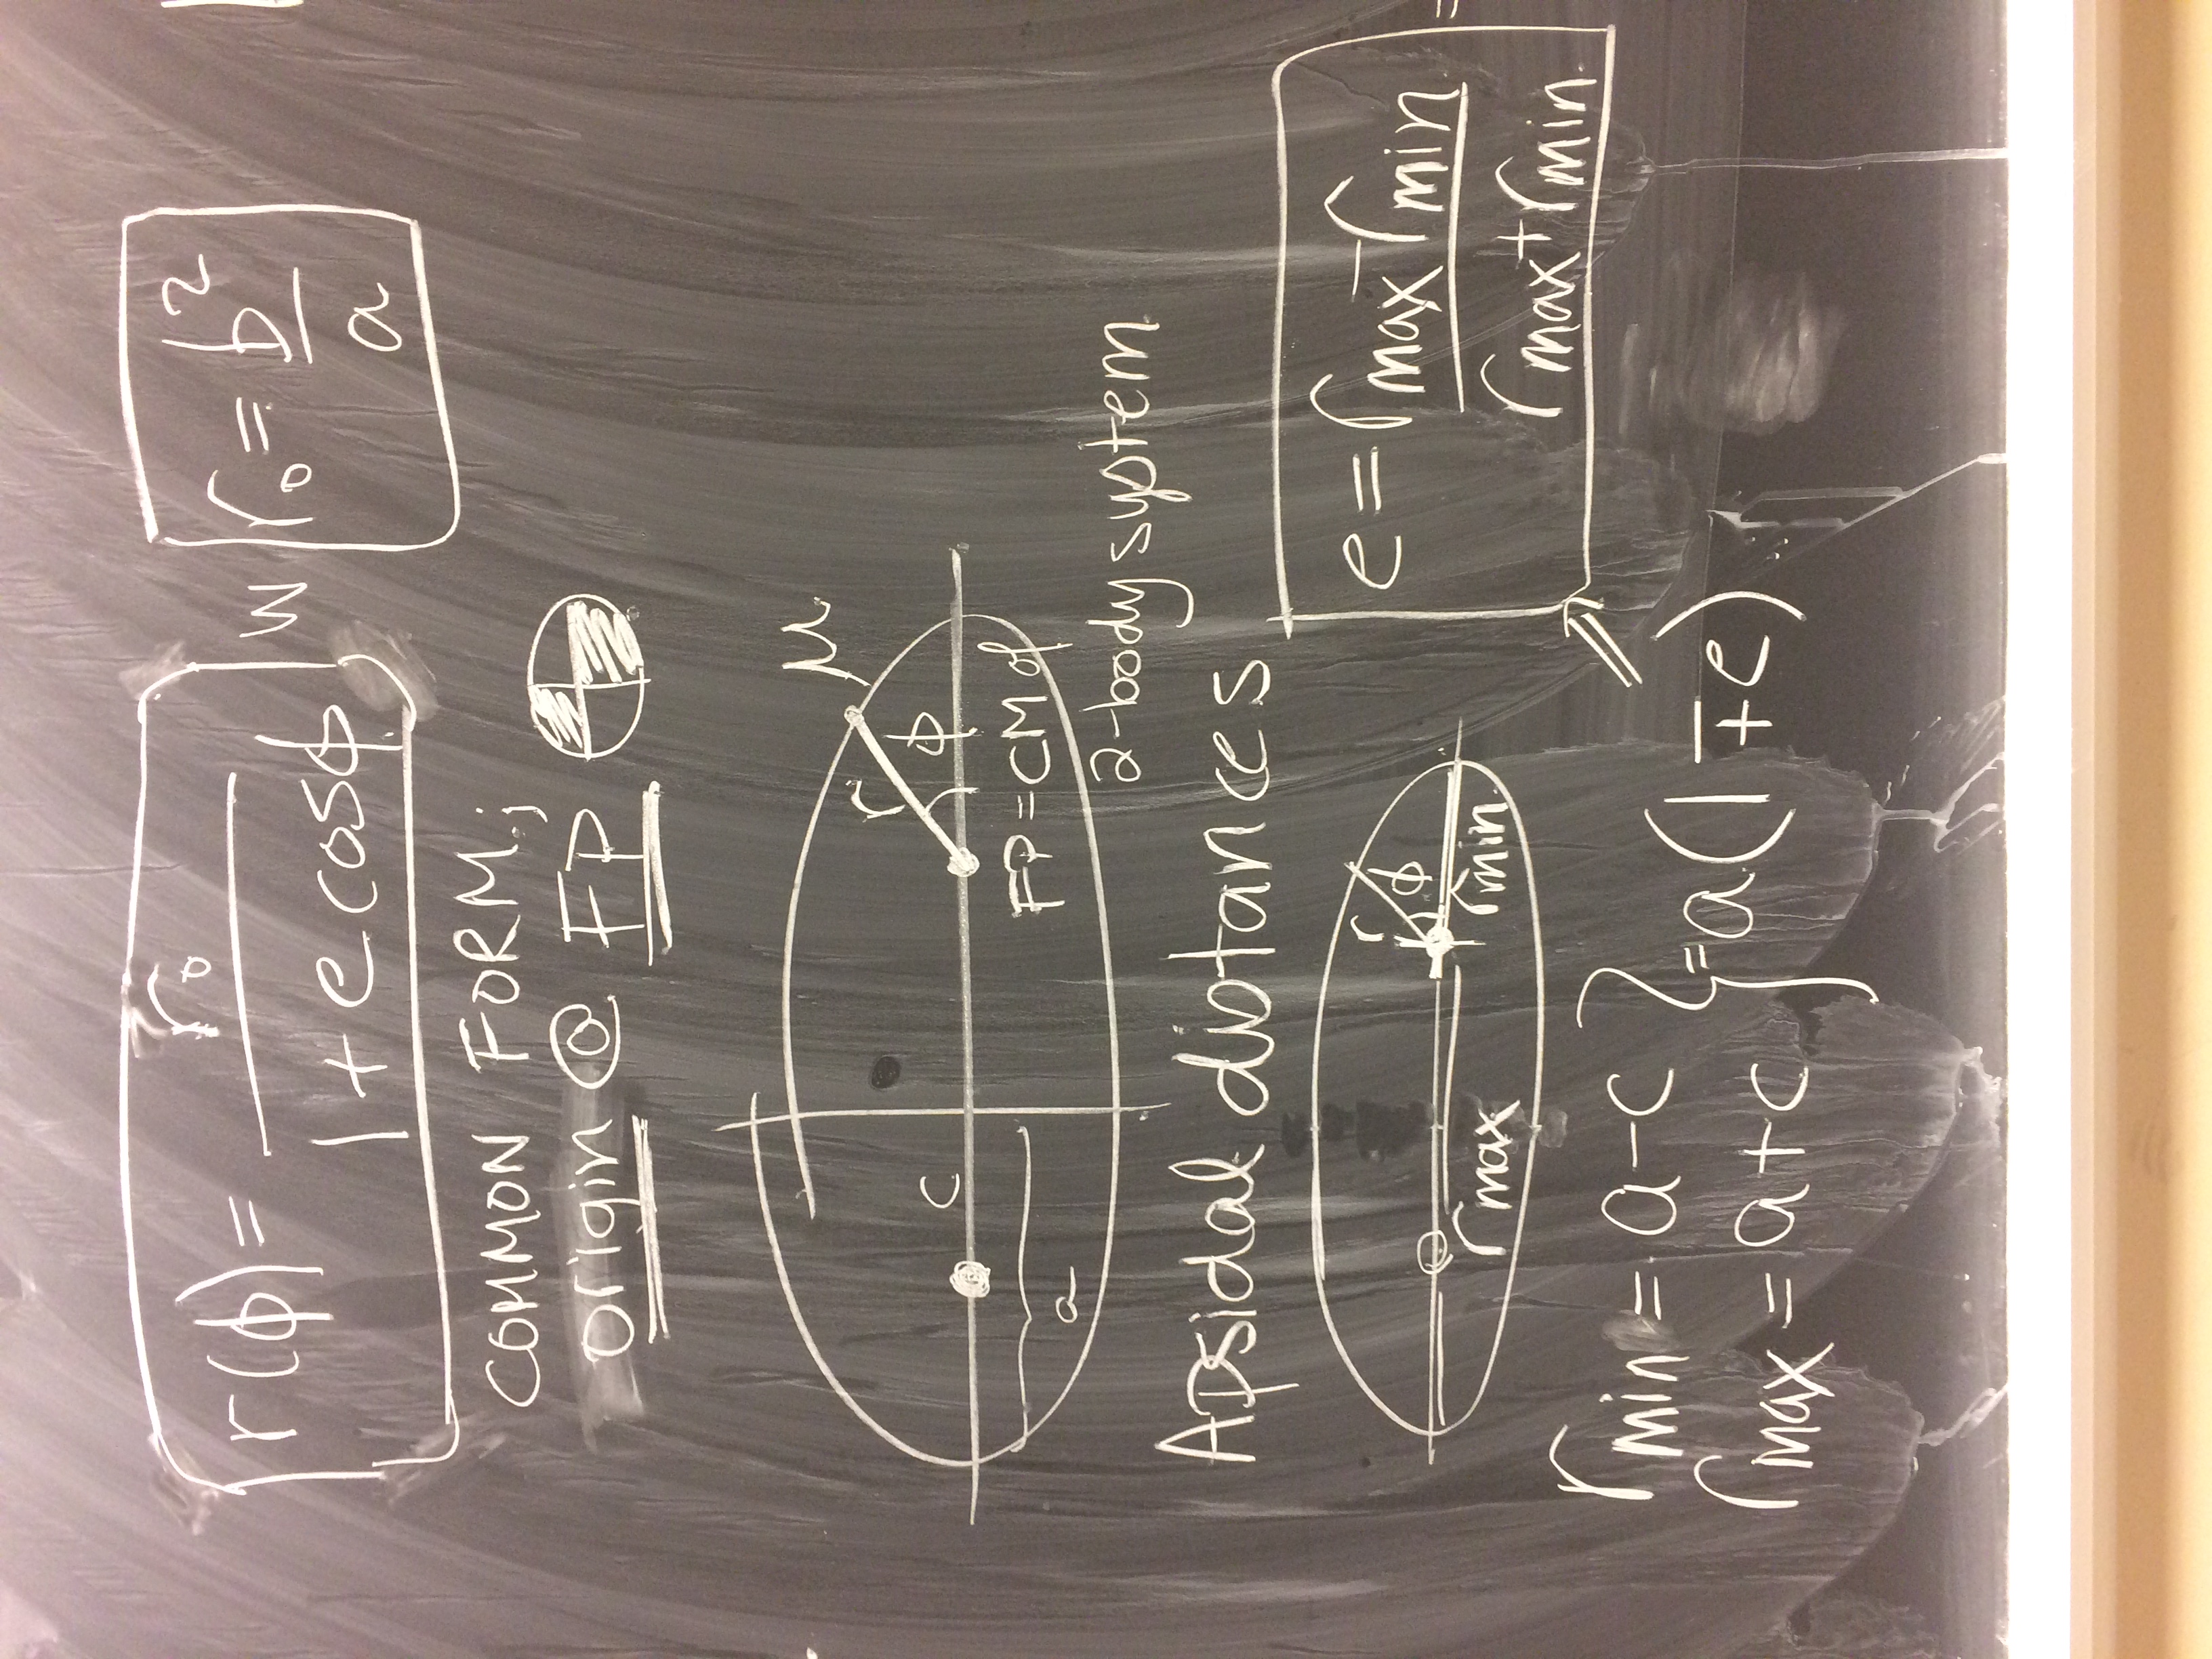 r(φ) = r₀ / (1 + e cosφ) w r₀ = b²/a
COMMON FORM;
origin @ FP
μ
r φ
c
FP = CM of
a
2-body system
Apsidal distances
r φ
rmax rmin
e = (rmax - rmin) / (rmax + rmin)
rmin = a - c
rmax = a + c } = a(1 ∓ e)